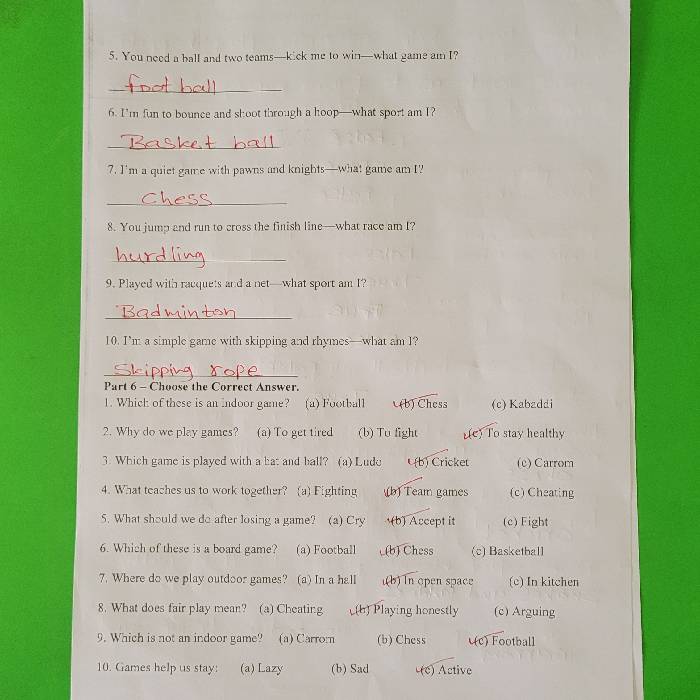 5. You need a ball and two teams—kick me to win—what game am I?
foot ball
6. I'm fun to bounce and shoot through a hoop—what sport am I?
Basket ball
7. I'm a quiet game with pawns and knights—what game am I?
Chess
8. You jump and run to cross the finish line—what race am I?
hurdling
9. Played with racquets and a net—what sport am I?
Badminton
10. I'm a simple game with skipping and rhymes—what am I?
Skipping rope
Part 6 – Choose the Correct Answer.
1. Which of these is an indoor game? (a) Football (b) Chess (c) Kabaddi
2. Why do we play games? (a) To get tired (b) To fight (c) To stay healthy
3. Which game is played with a bat and ball? (a) Ludo (b) Cricket (c) Carrom
4. What teaches us to work together? (a) Fighting (b) Team games (c) Cheating
5. What should we do after losing a game? (a) Cry (b) Accept it (c) Fight
6. Which of these is a board game? (a) Football (b) Chess (c) Basketball
7. Where do we play outdoor games? (a) In a hall (b) In open space (c) In kitchen
8. What does fair play mean? (a) Cheating (b) Playing honestly (c) Arguing
9. Which is not an indoor game? (a) Carrom (b) Chess (c) Football
10. Games help us stay: (a) Lazy (b) Sad (c) Active